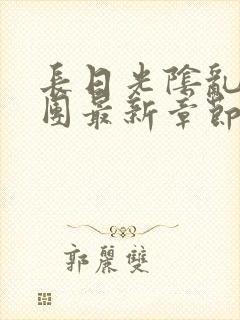 長日光陰亂
團最新章節
郭麗雙